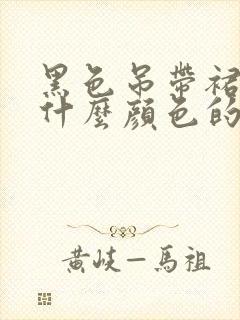 黑色吊帶裙
什麼顏色的
黃岐—馬祖